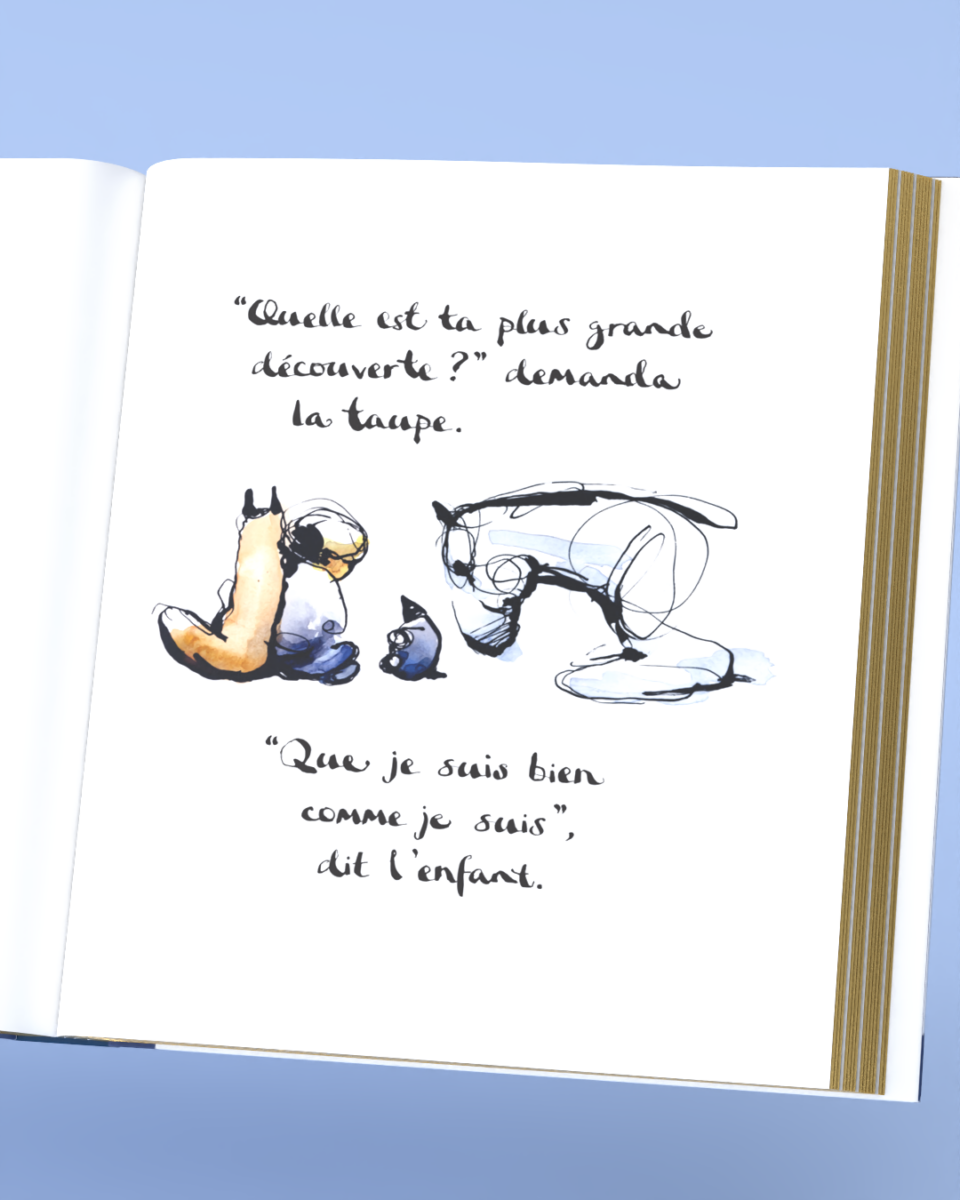 “Quelle est ta plus grande
découverte ?” demanda
la taupe.
“Que je suis bien
comme je suis”,
dit l'enfant.